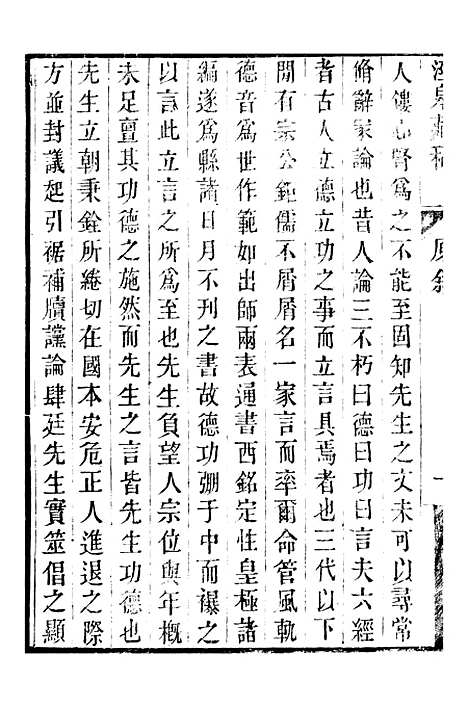 涇皋藏稿 原敘 一
人儘心腎爲之不能至固知先生之文未可以尋常
脩辭家論也昔人論三不朽曰德曰功曰言夫六經
者古人立德立功之事而立言具焉者也三代以下
閒有宗公鉅儒不屑屑名一家言而率爾命管風軌
德音爲世作範如出師兩表通書西銘定性皇極諸
編遂爲縣諸日月不刊之書故德功弸于中而襮之
以言此立言之所爲至也先生負望人宗位與年概
未足亶其功德之施然而先生之言皆先生功德也
先生立朝秉銓所綣切在國本安危正人進退之際
方並封議起引裾補牘讜論肆廷先生實筮倡之顯